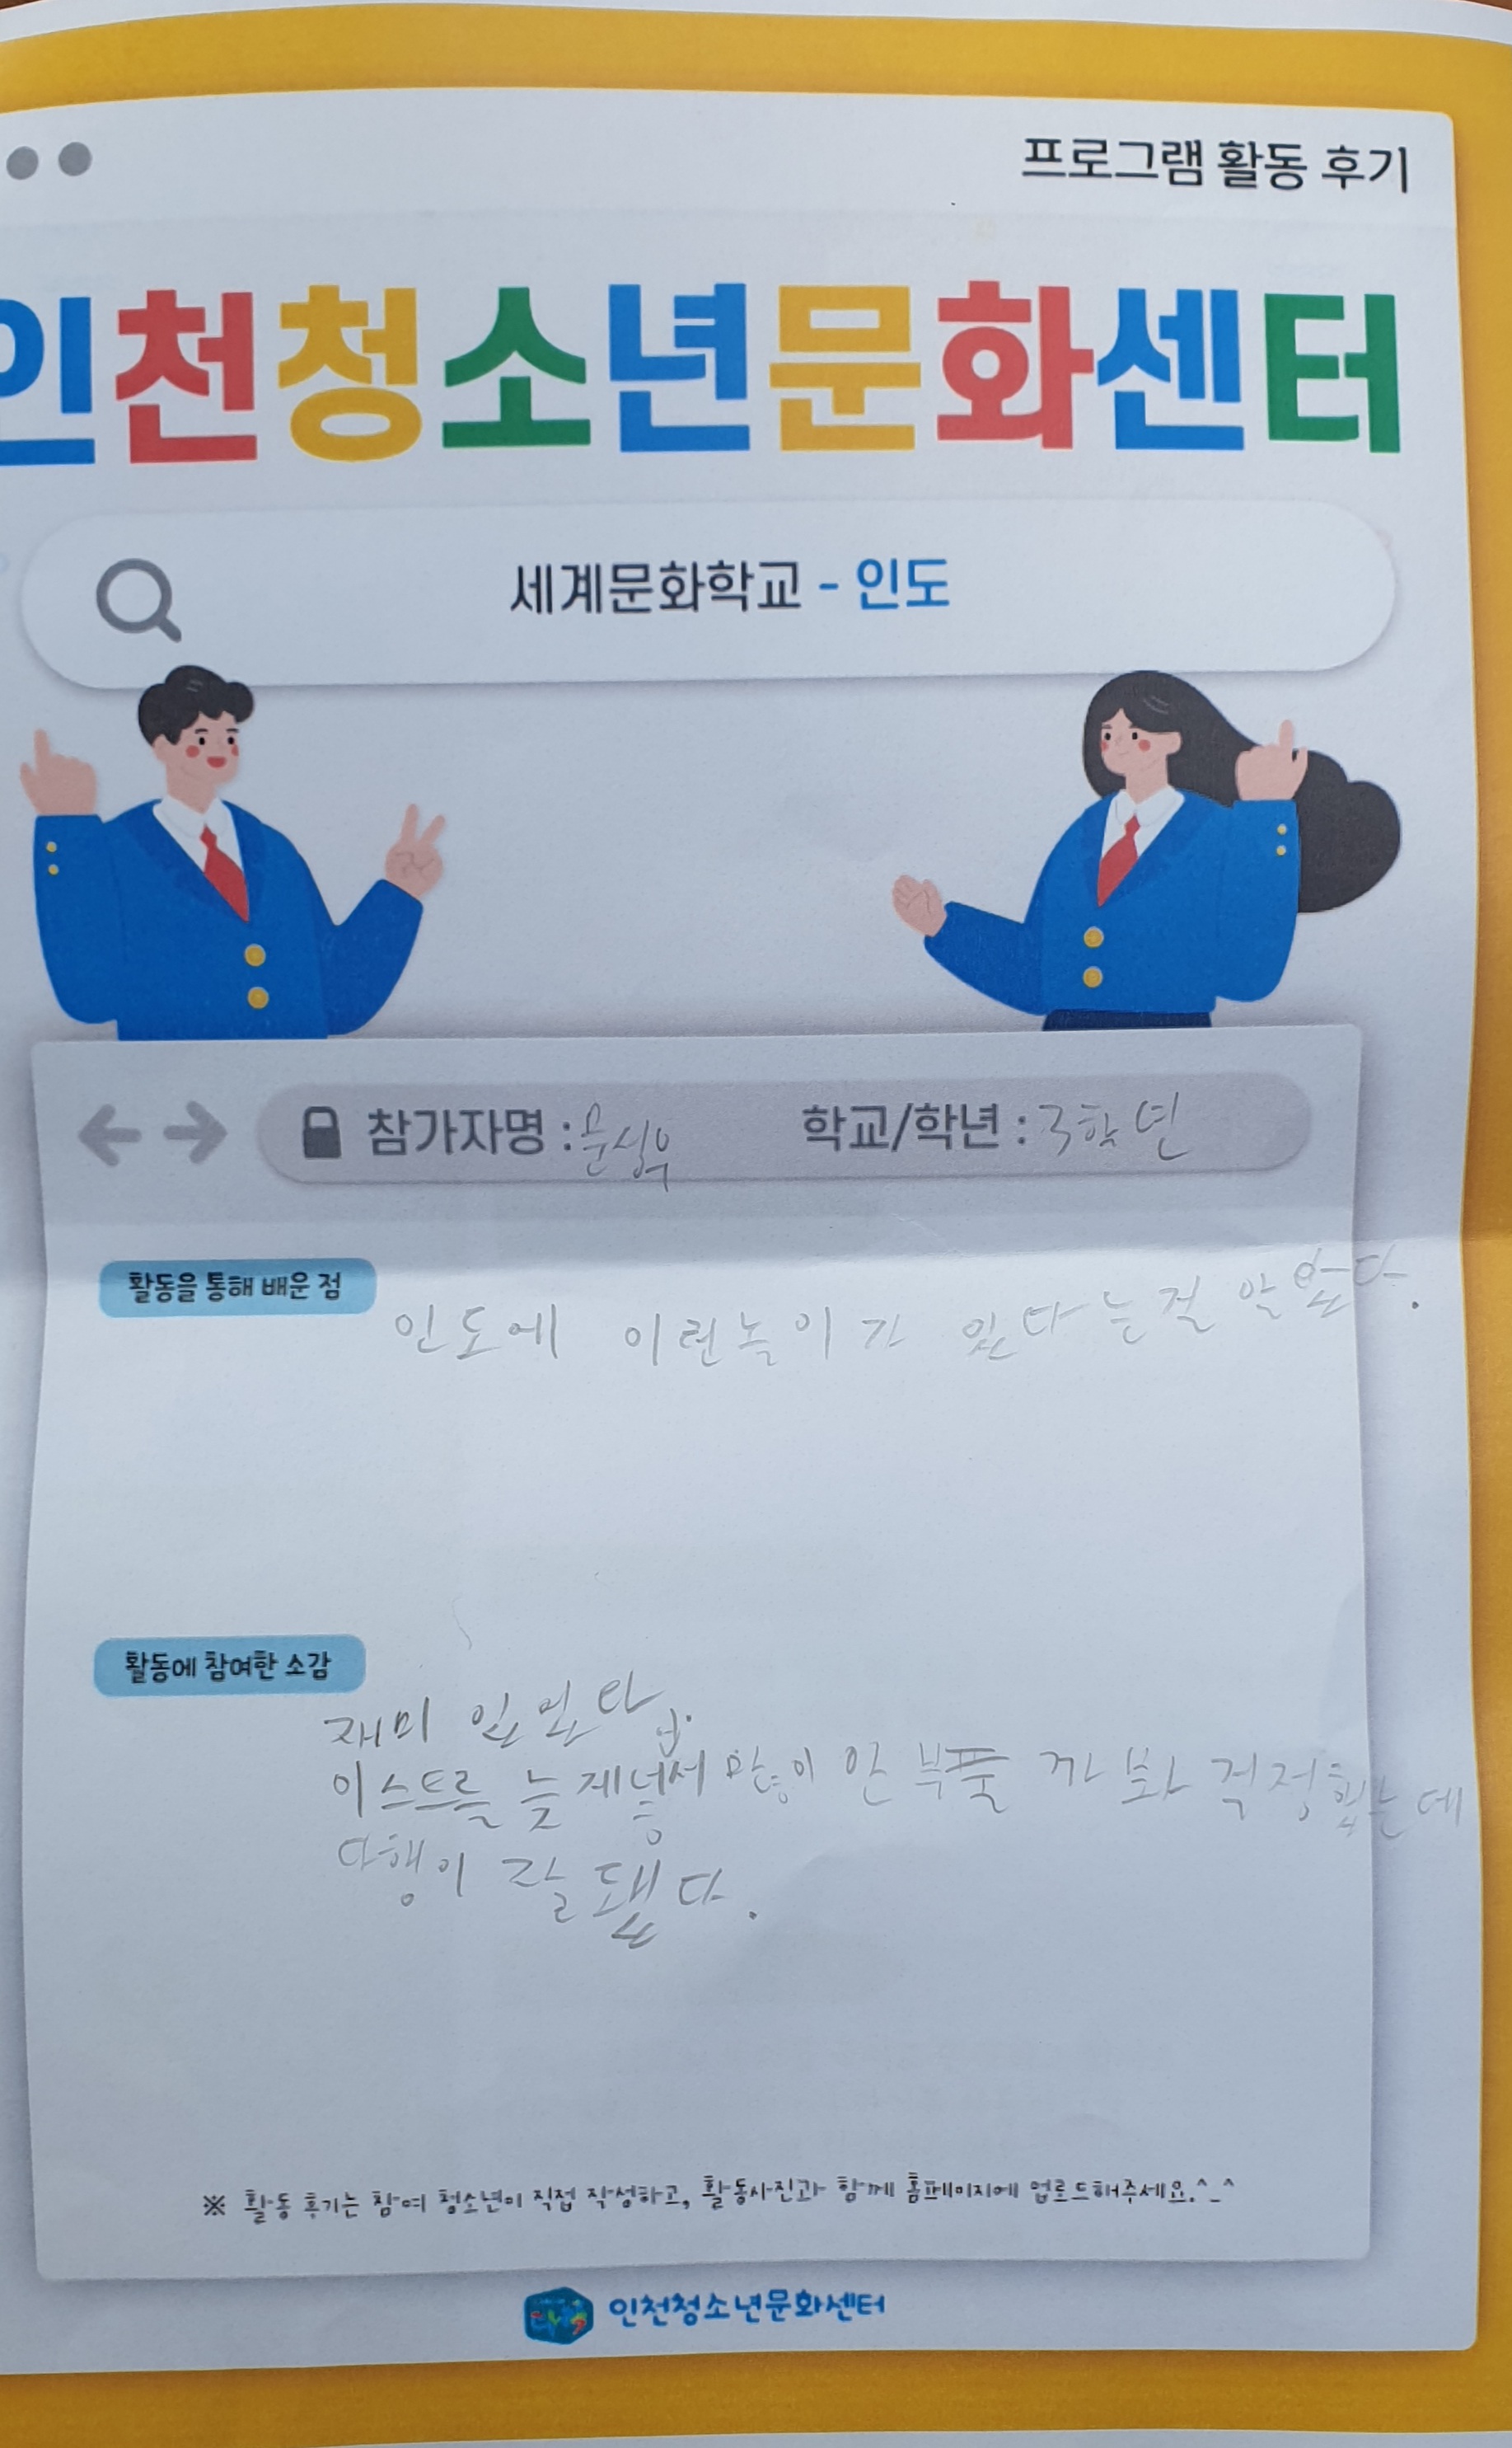 프로그램 활동 후기
인천청소년문화센터
세계문화학교 - 인도
참가자명 : 문시우 학교/학년 : 3학년
활동을 통해 배운 점
인도에 이런놀이가 있다는걸 알았다.
활동에 참여한 소감
재미 있었다.
이스트를 늦게넣어서 많이 안 부풀 까봐 걱정했는데
다행이 잘 됐다.
※ 활동 후기는 참여 청소년이 직접 작성하고, 활동사진과 함께 홈페이지에 업로드해주세요.^_^
인천청소년문화센터